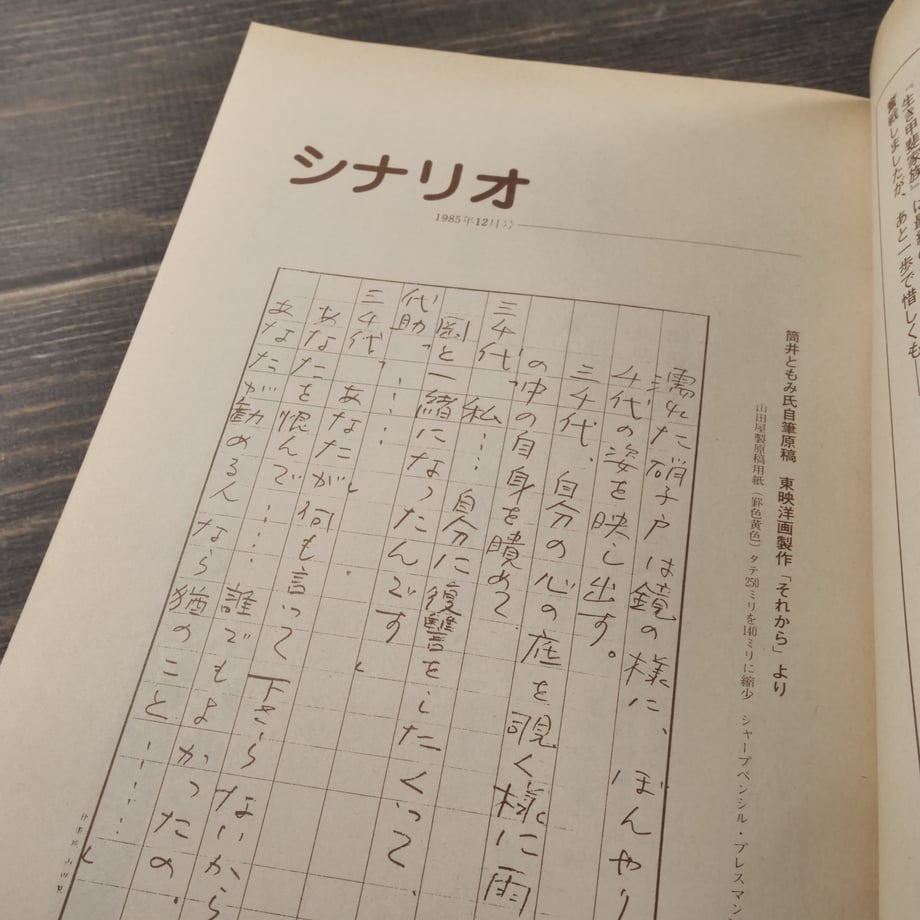 シナリオ
1985年12月号
筒井ともみ氏自筆原稿　東映洋画製作「それから」より
山田屋製原稿用紙（罫色黄色）タテ250ミリを140ミリに縮少　シャープペンシル・プレスマン
濡れた硝子戸は鏡の様に、ぼんやり
千代の姿を映し出す。
三千代、自分の心の底を覗く様に雨
の中の自身を瞶めて
三千代「私…自分に復讐をしたくって、
と一緒になったんです」
代助「……」
三千代「あなたが何も言って下さらないから
あなたを恨んで……誰でもよかったの。
あなたが勧める人なら猶のこと……」
「生き甲斐家族」に最終の
奮戦しましたが、あと一歩で惜しくも